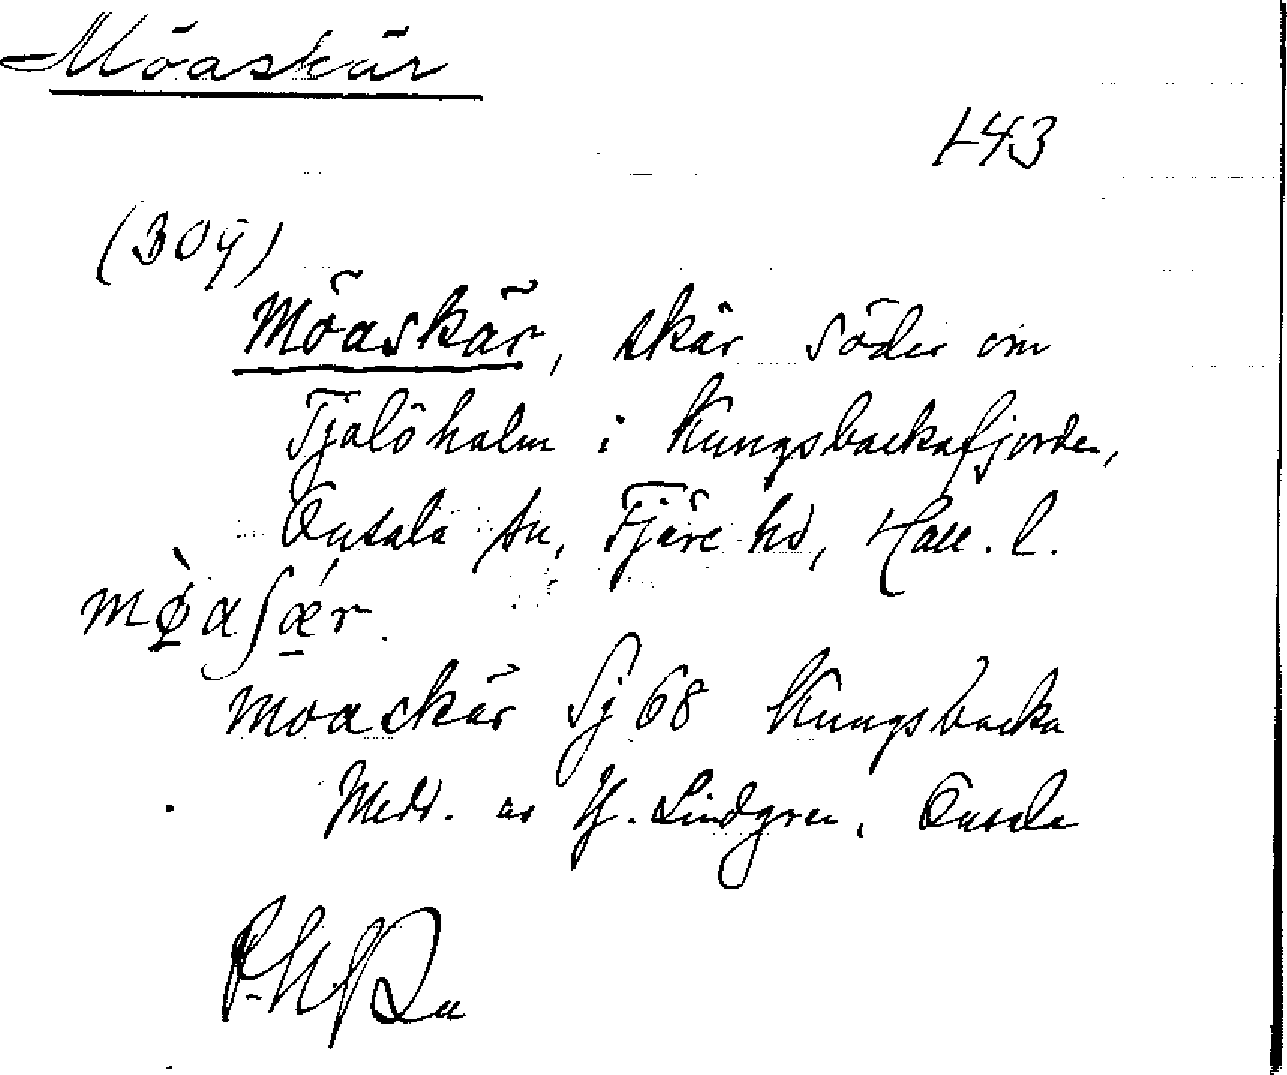 Möaskär
143
(309)
Möaskär, skär söder om
Tjolöholm i Kungsbackafjorden,
Onsala sn, Fjäre hd, Hall. l.
mø̀aʃǽr.
Moaskär Sj 68 Kungsbacka
Medd. av Hj. Lindgren, Onsala